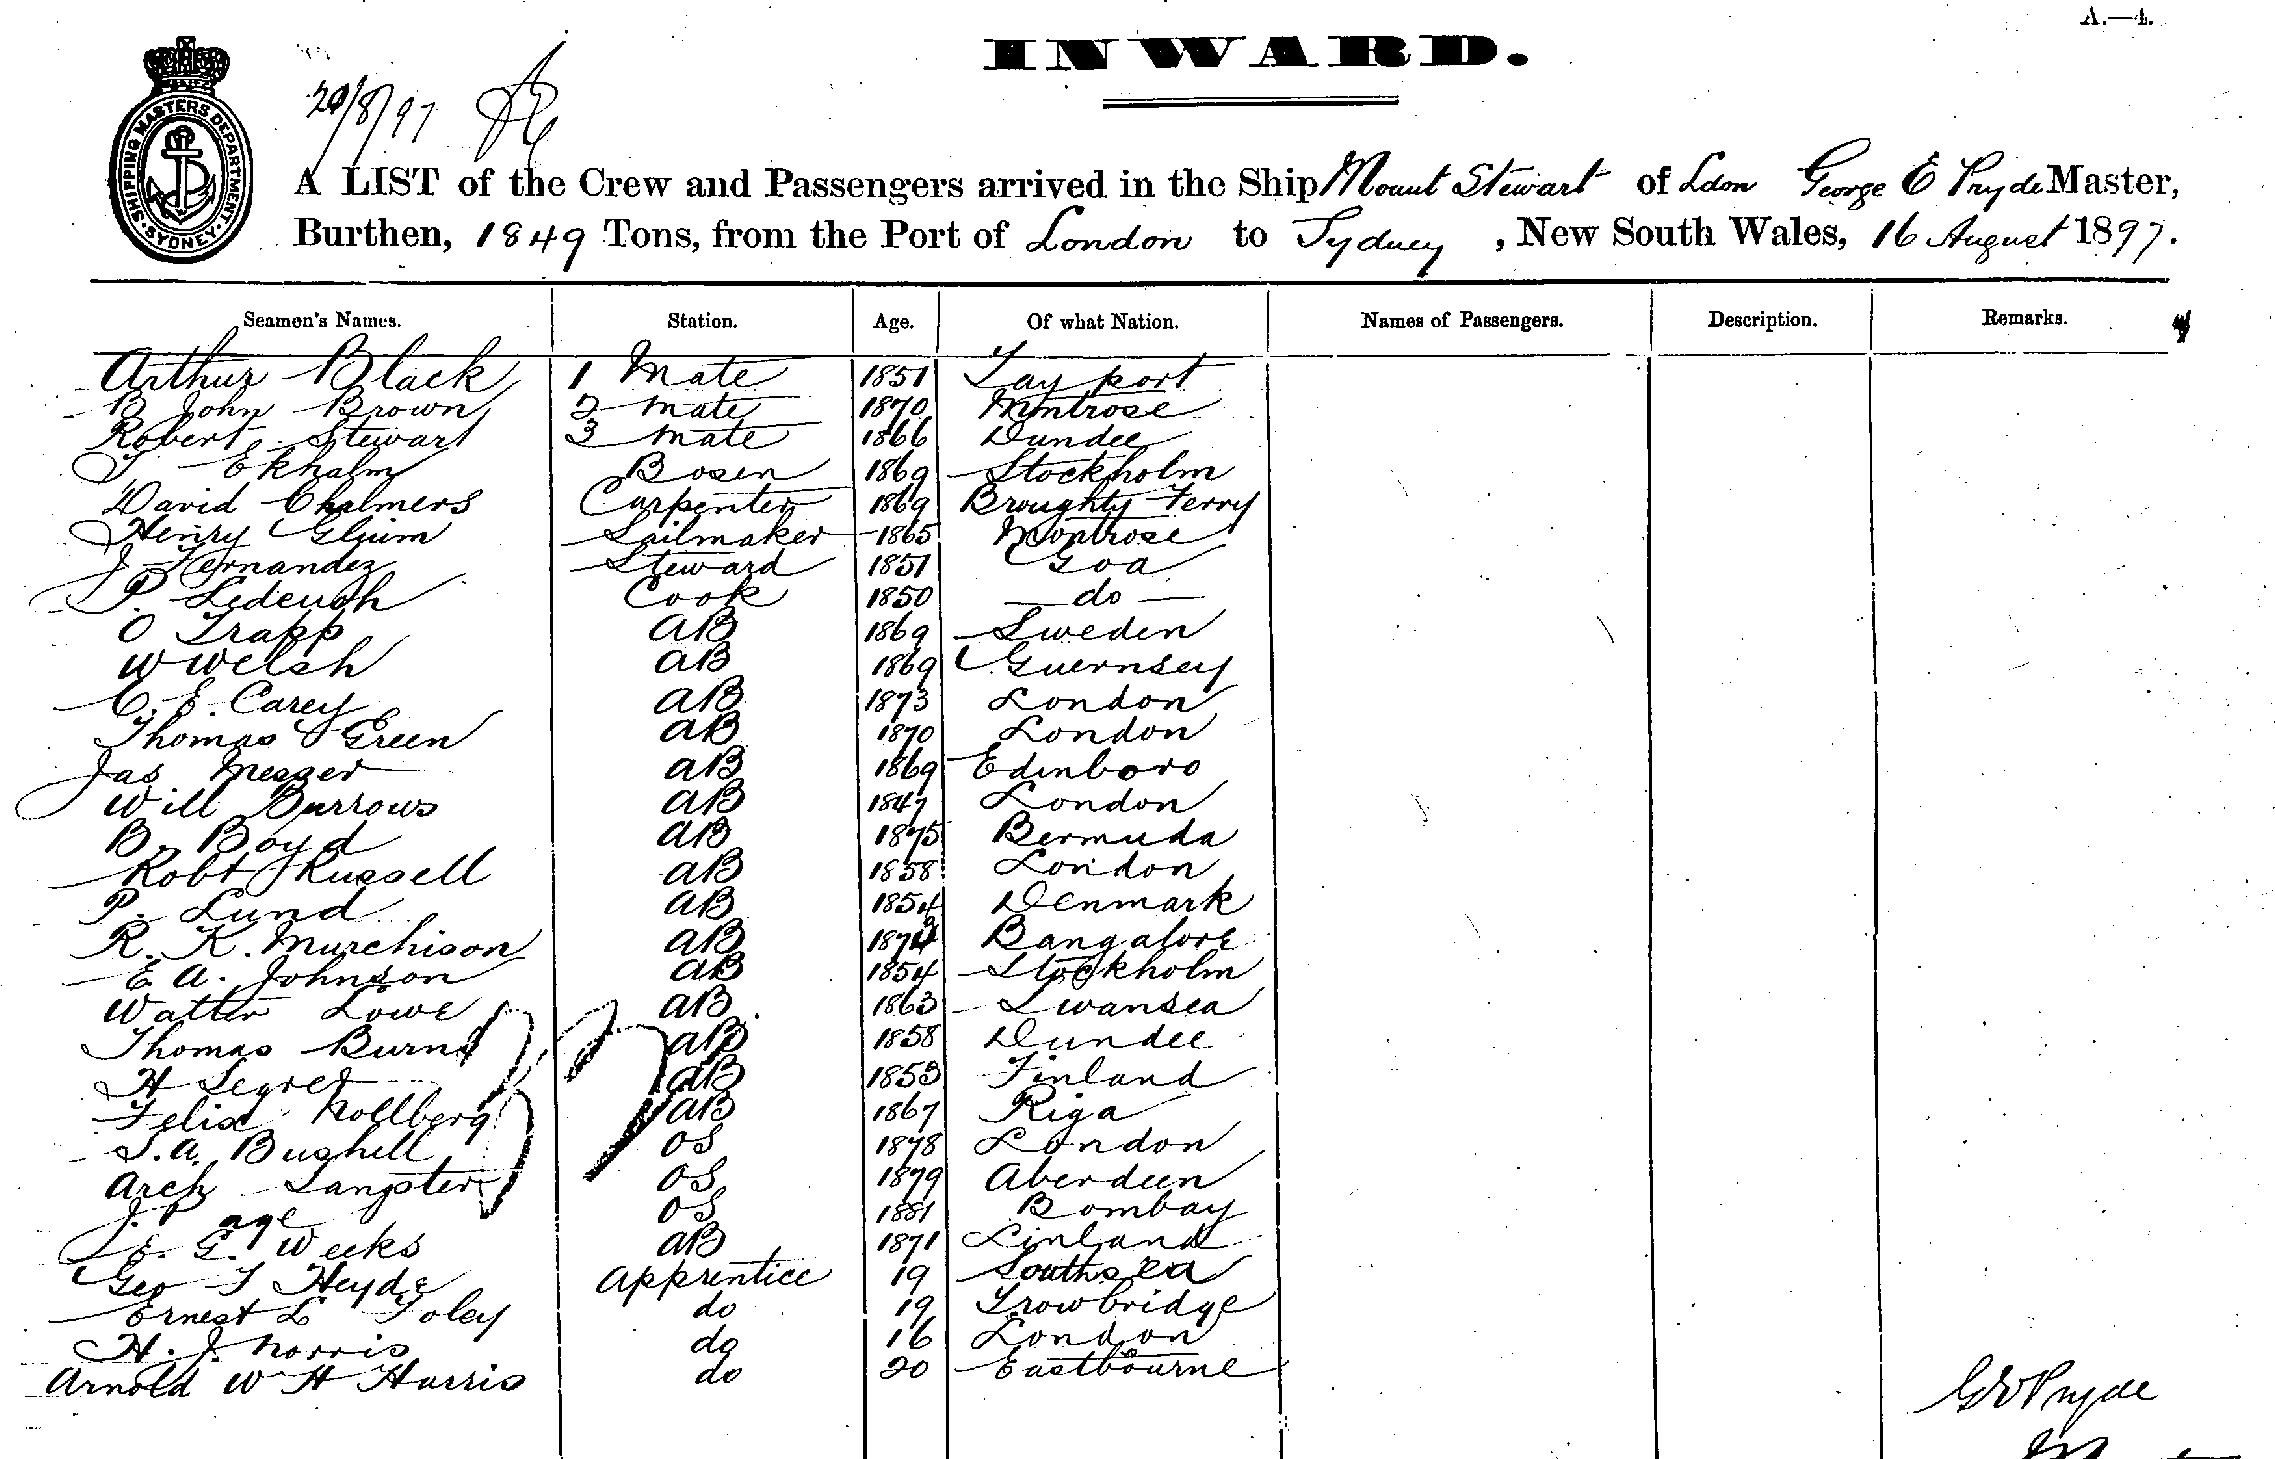 A.—4.
INWARD.
SHIPPING MASTERS DEPARTMENT
SYDNEY
20/8/97
A LIST of the Crew and Passengers arrived in the Ship Mount Stewart of Ldon George E Pryde Master,
Burthen, 1849 Tons, from the Port of London to Sydney, New South Wales, 16 August 1897.
Seamen's Names. Station. Age. Of what Nation. Names of Passengers. Description. Remarks.
Arthur Black 1 Mate 1851 Tayport
B John Brown 2 Mate 1870 Montrose
Robert Stewart 3 Mate 1866 Dundee
Ekholm Bosen 1869 Stockholm
David Chalmers Carpenter 1869 Broughty Ferry
Henry Sailmaker 1865 Montrose
J Fernandez Steward 1851 Goa
P. Cook 1850 do
O Trapp AB 1869 Sweden
W Welsh AB 1869 Guernsey
C. E. Carey AB 1873 London
Thomas Green AB 1870 London
Jas AB 1869 Edinboro
Will Burrows AB 1847 London
B. Boyd AB 1875 Bermuda
Robt Russell AB 1858 London
P. Lund AB 1854 Denmark
R. K. Murchison AB Bangalore
E A. Johnson AB 1854 Stockholm
Walter Lowe AB 1863 Swansea
Thomas Burns AB 1858 Dundee
H Segret AB 1853 Finland
Felix AB 1867 Riga
S. A. Bushell OS 1878 London
Arch Sangster OS 1879 Aberdeen
J. Page OS 1881 Bombay
E. G. Weeks AB 1871
Geo T Heyde Apprentice 19 Southsea
Ernest L Foley do 19 Trowbridge
H. J. Norris do 16 London
Arnold W H Harris do 20 Eastbourne
Pryde